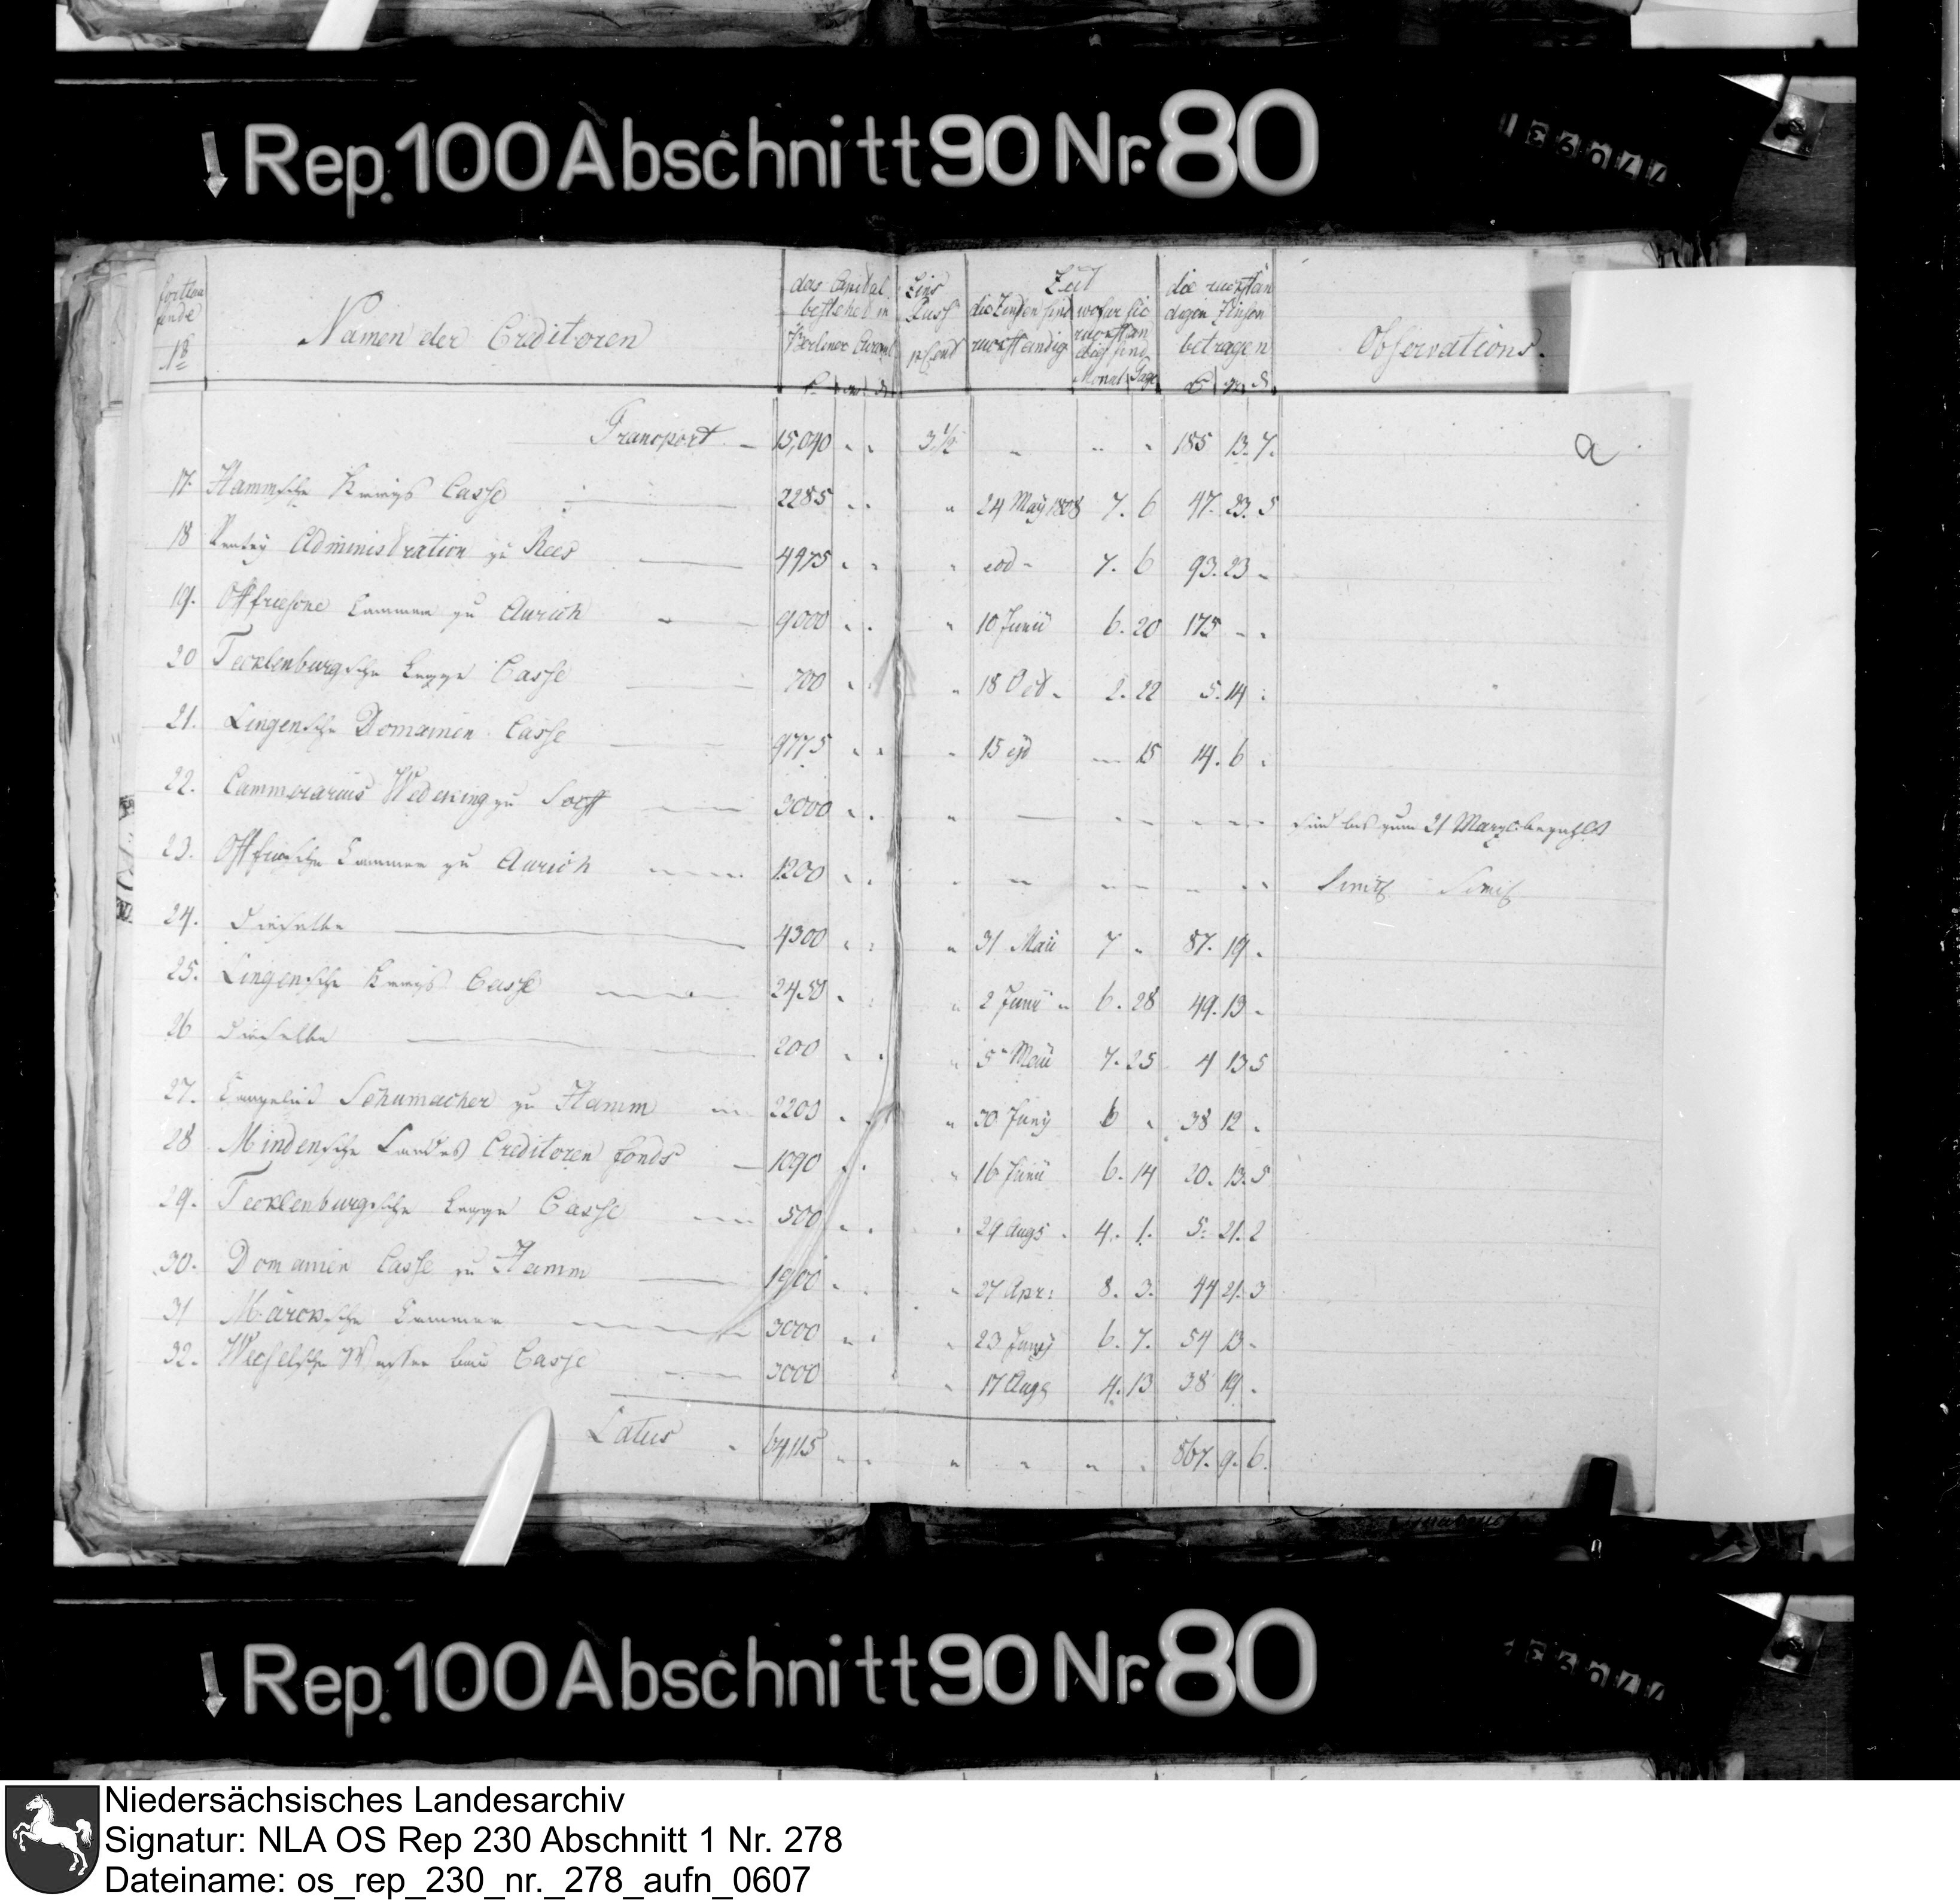 Rep. 100 Abschnitt 90 Nr. 80
fortlau
fende
No
Namen der Creditoren
das Capital
bestehet in
Berliner Curant
Zins
Fuss
Zeit
die Zinsen sind
ruckstandig
wofur sie
ruckstan
dig sind
Monat Tage
die ruckstan
digen Zinsen
betragen
Observations.
Transport 15,040 3 1/2 185 13. 7.
a
17. Hammsche Kriegs Casse 2285 " 24 May 1808 7. 6 47. 23. 5
18 Rentey Administration zu Rees 4475 " eod 7. 6 93. 23
19. Ostfriesche Cammer zu Aurich 9000 " 10 Junii 6. 20 175
20 Tecklenburgsche Legge Casse 700 " 18 Oct. 2. 22 5. 14
21. Lingensche Domainen Casse 9775 " 15 15 14. 6
22. Cammerarius Wedeking zu Soest 3000 " sind bis zum 21 Marz bezahlt
23. Ostfriesche Cammer zu Aurich 1200
24. Dieselbe 4300 " 31 Maii 7 " 87. 19
25. Lingensche Kriegs Casse 2450 " 2 Junii 6. 28 49. 13
26 Dieselbe 200 " 5 Maii 7. 25 4 13 5
27. Schumacher zu Hamm 2200 " 30 Juny 6 " 38 12
28 Mindensche Landes Creditoren fonds 1090 " 16 Junii 6. 14 20. 13. 5
29. Tecklenburgsche Legge Casse 500 " 29 Augs 4. 1. 5. 21. 2
30. Domainen Casse zu Hamm 1900 " 27 Apr: 8. 3. 44 21. 3
31 Märcksche Cammer 3000 " 23 Juny 6. 7. 54 13
32. Wasser bau Casse 3000 " 17 Augs 4. 13 38 19
Latus 64,115 867. 9. 6.
Rep. 100 Abschnitt 90 Nr. 80
Niedersächsisches Landesarchiv
Signatur: NLA OS Rep 230 Abschnitt 1 Nr. 278
Dateiname: os_rep_230_nr._278_aufn_0607